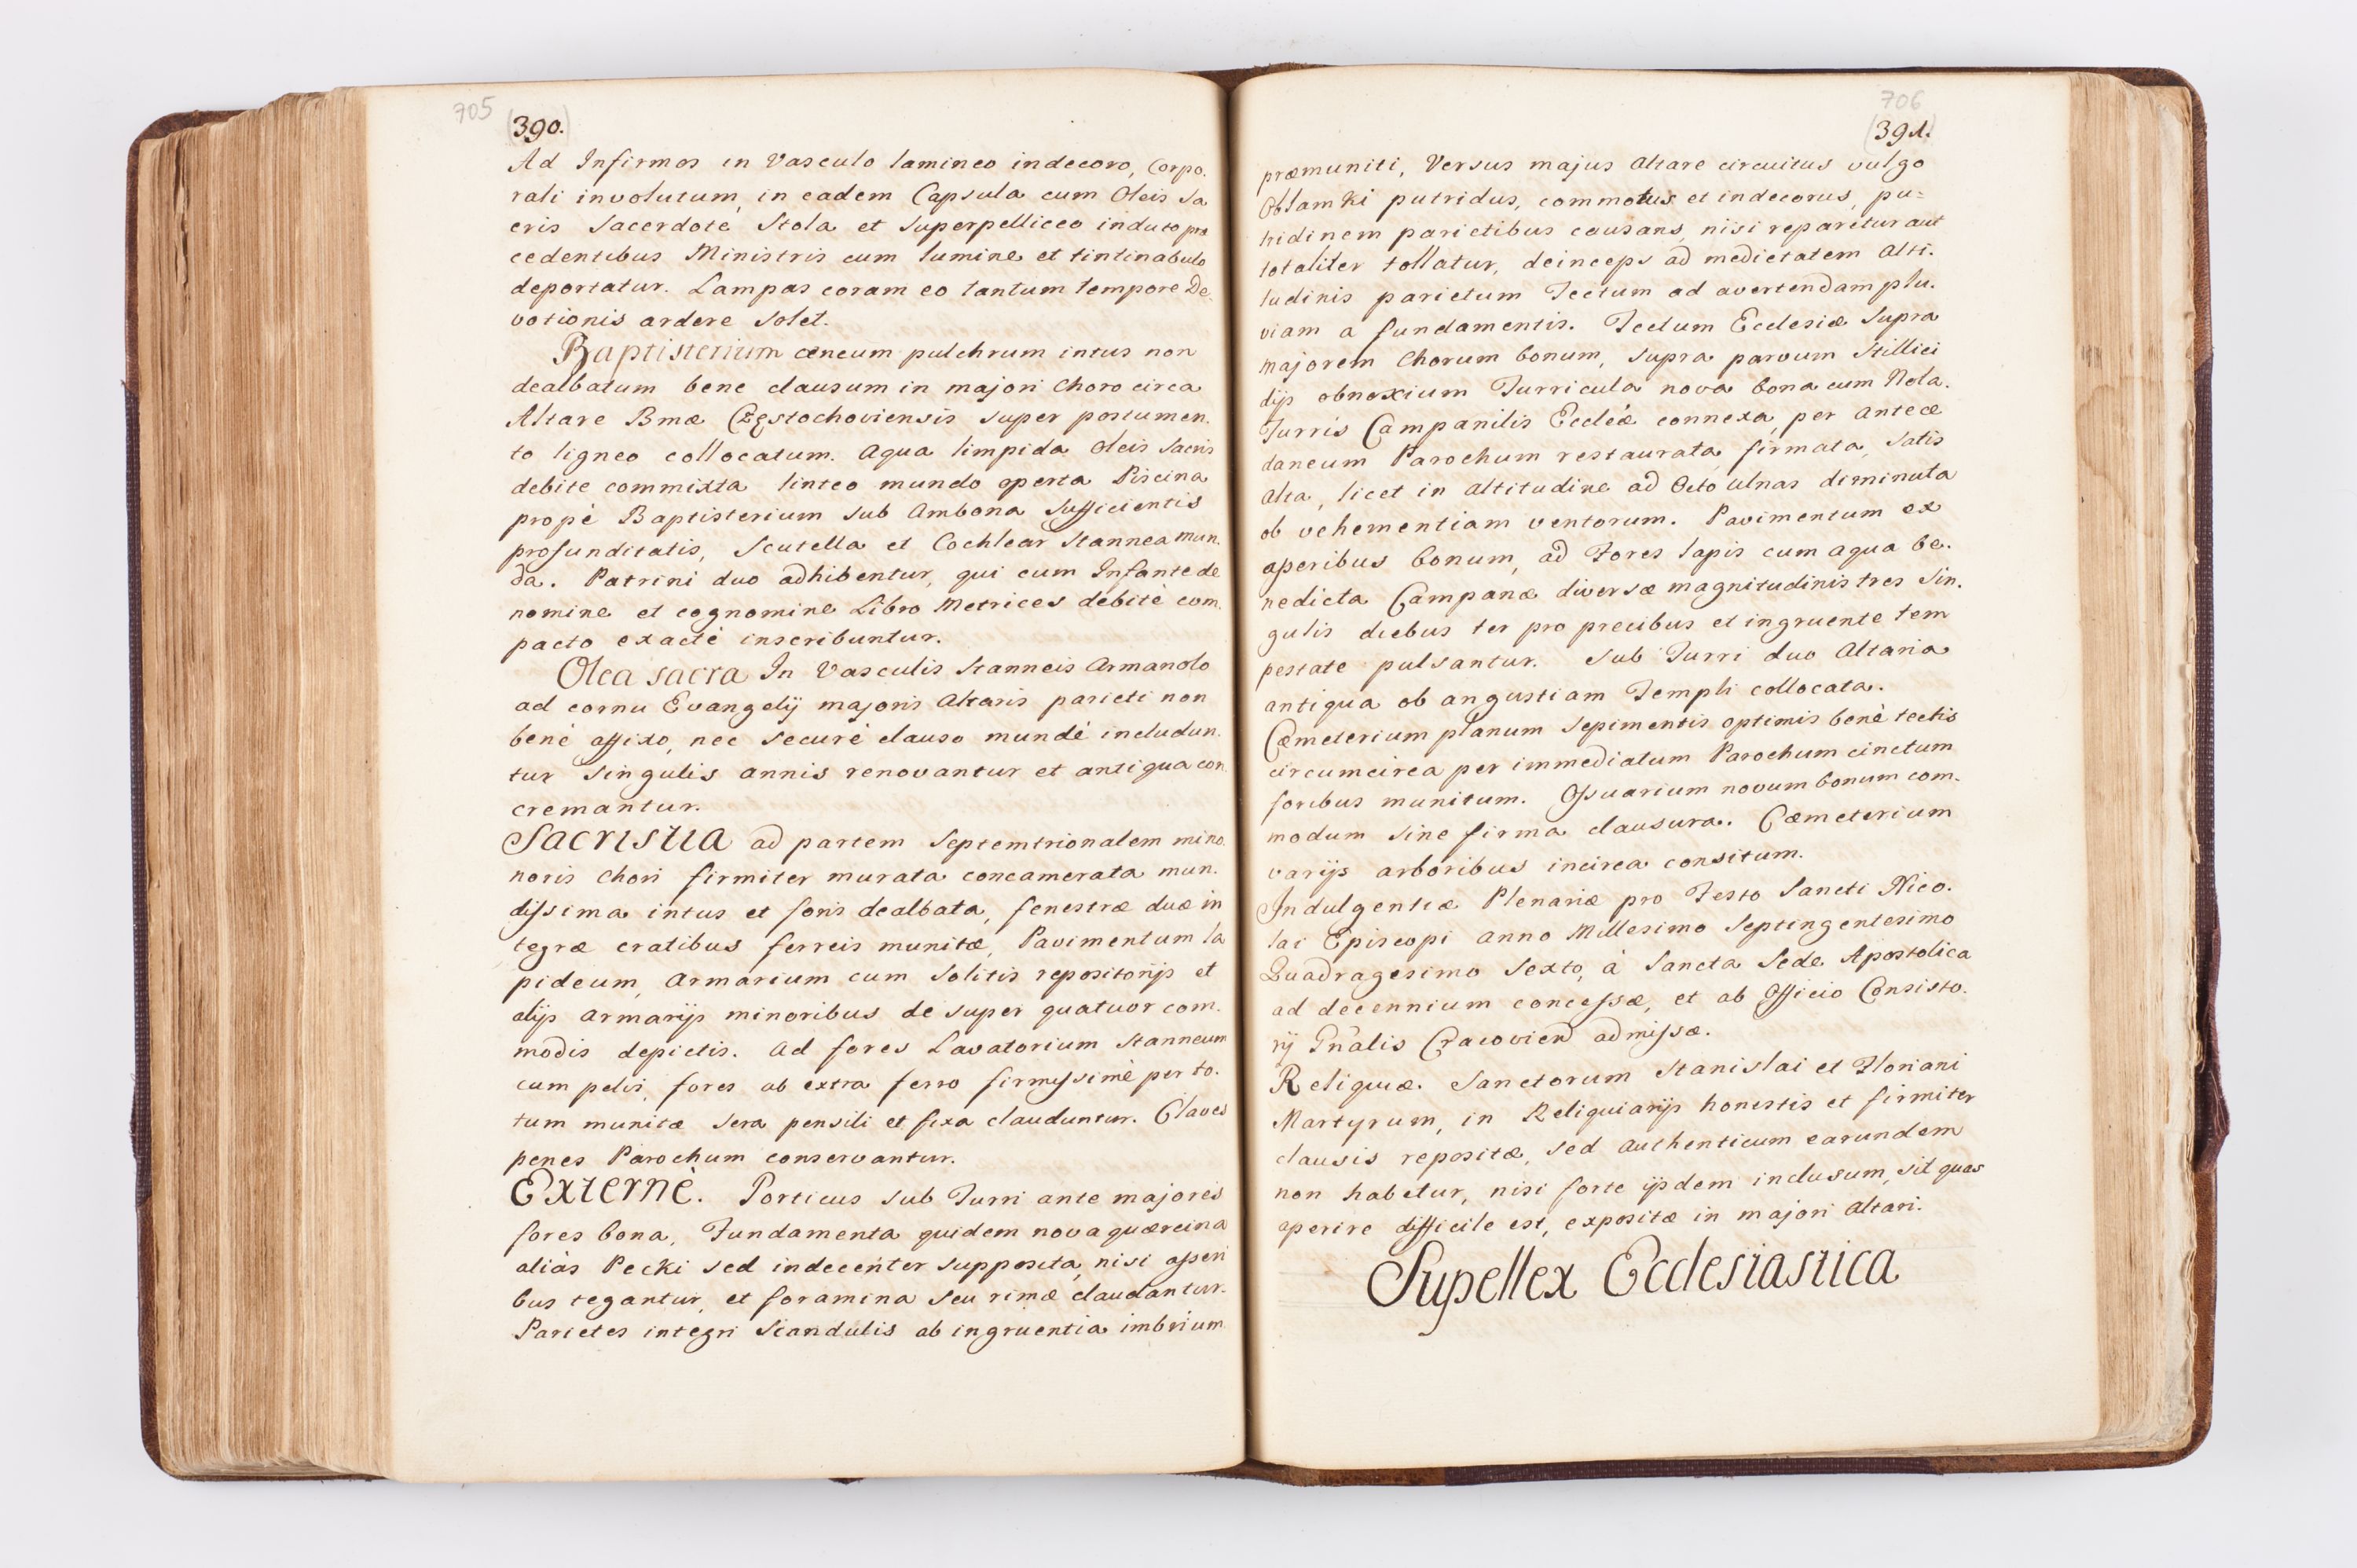 705
(390.)
Ad Infirmos in Vasculo lamineo indecoro, Corpo.
rali involutum, in eadem Capsula cum Oleis Sa
cris Sacerdote Stola et Superpelliceo induto præ
cedentibus Ministris cum lumine et tintinabulo
deportatur. Lampas coram eo tantum tempore De.
votionis ardere solet.
Baptisterium æneum pulchrum intus non
dealbatum bene clausum in majori Choro circa
Altare Bmæ Częstochoviensis super postumen.
to ligneo collocatum. Aqua limpida Oleis Sacris
debite commixta linteo mundo operta Piscina
propè Baptisterium sub Ambona Sufficientis
profunditatis, Scutella et Cochlear Stannea mun.
da. Patrini duo adhibentur, qui cum Infante de
nomine et cognomine Libro Metrices debitè com.
pacto exactè inscribuntur.
Olea sacra In Vasculis Stanneis Armariolo
ad cornu Evangelij majoris Altaris parieti non
benè affixo, nec securè clauso mundè includun.
tur singulis annis renovantur et antiqua con.
cremantur.
Sacristia ad partem Septemtrionalem mino.
noris Chori firmiter murata concamerata mun.
dissima intus et foris dealbata, fenestræ duæ in
tegræ cratibus ferreis munitæ, Pavimentum la
pideum, Armarium cum solitis repositorijs et
alijs armarijs minoribus de super quatuor com.
modis depictis. Ad fores Lavatorium Stanneum
cum pelvi, fores ab extra ferro firmissimè per to.
tum munitæ sera pensili et fixa clauduntur. Claves
penes Parochum conservantur.
Externè. Porticus sub Turri ante majores
fores bona, Fundamenta quidem nova quærcina
aliàs Pecki sed indecenter supposita, nisi asseri
bus tegantur, et foramina seu rimæ claudantur.
Parietes integri Scandulis ab ingruentia imbrium
706
(391.)
præmuniti, Versus majus Altare circuitus vulgo
Obłamki putridus, commotus et indecorus, pu=
tridinem parietibus causans, nisi reparetur aut
totaliter tollatur, deinceps ad medietatem Alti.
tudinis parietum Tectum ad avertendam plu.
viam a fundamentis. Tectum Ecclesiæ supra
majorem Chorum bonum, supra parvum Stillici
dijs obnoxium Turricula nova bona cum Nola.
Turris Campanilis Eccleæ connexa, per antece
daneum Parochum restaurata, firmata, satis
alta, licet in altitudine ad Octo ulnas diminuta
ob vehementiam ventorum. Pavimentum ex
asperibus bonum, ad Fores lapis cum aqua be.
nedicta Campanæ diversæ magnitudinis tres Sin.
gulis diebus ter pro precibus et ingruente tem
pestate pulsantur. Sub Turri duo Altaria
antiqua ob angustiam Templi collocata.
Cæmeterium planum Sepimentis optimis benè tectis
circumcirca per immediatum Parochum cinctum
foribus munitum. Ossuarium novum bonum com.
modum sine firma clausura. Cæmeterium
varijs arboribus incirca consitum.
Indulgentiæ Plenariæ pro Festo Sancti Nico.
lai Episcopi anno Millesimo Septingentesimo
Quadragesimo Sexto, à Sancta Sede Apostolica
ad decennium concessæ, et ab Officio Consisto.
rij Gñalis Cracovien admissæ.
Reliquiæ. Sanctorum Stanislai et Floriani
Martyrum, in Reliquiarijs honestis et firmiter
clausis repositæ, sed authenticum earundem
non habetur, nisi forte ijsdem inclusum, sit quas
aperire difficile est, expositæ in majori Altari.
Supellex Ecclesiastica